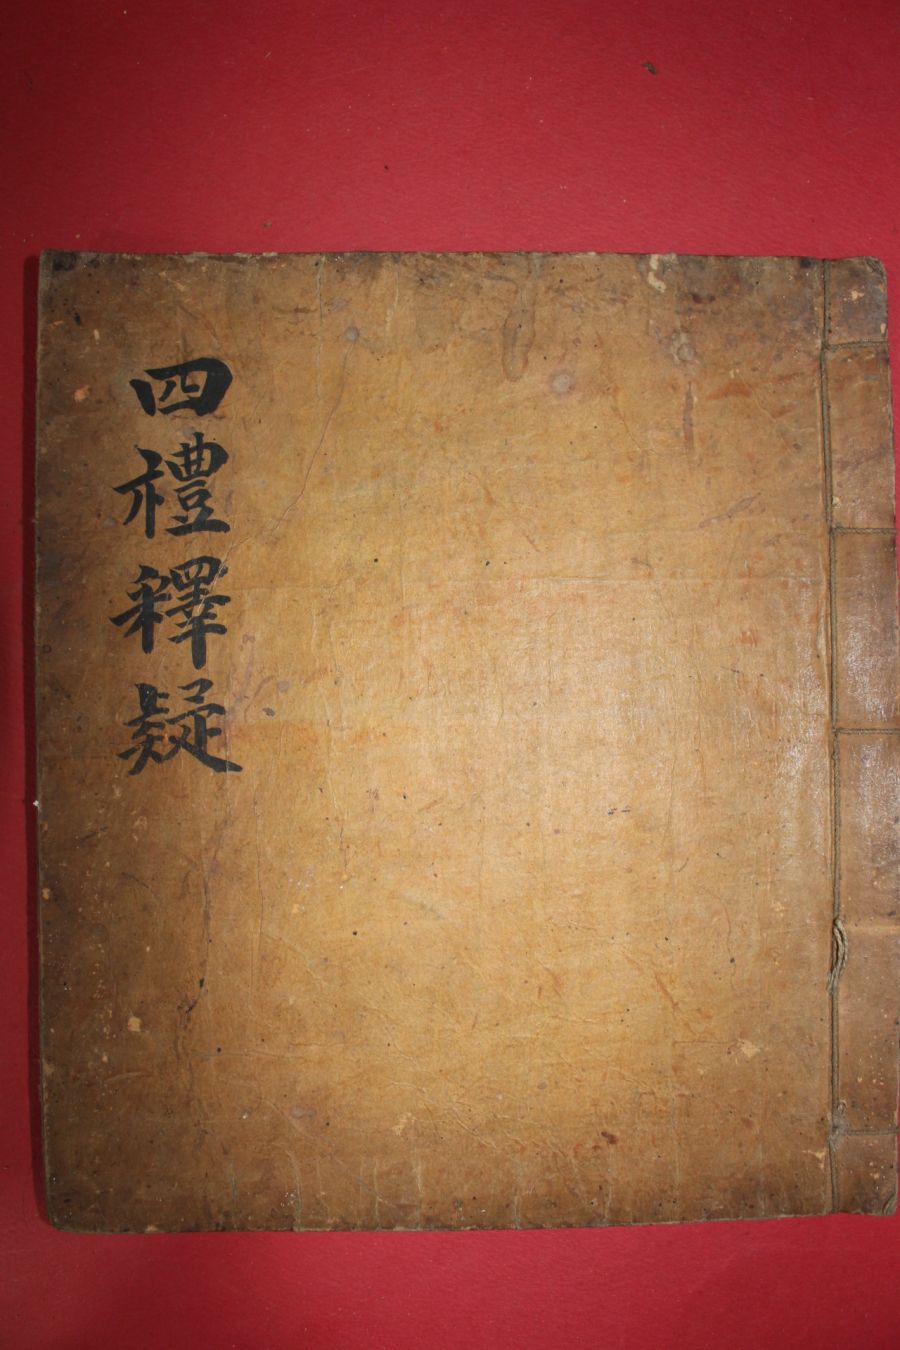 四禮釋疑